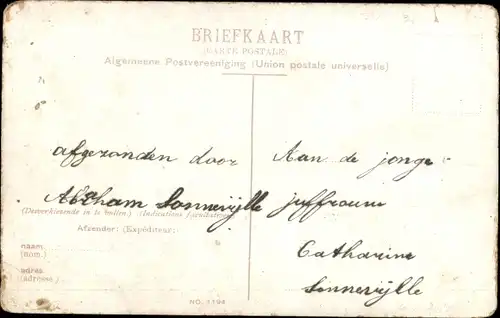 BRIEFKAART
(CARTE POSTALE)
Algemeene Postvereeniging (Union postale universelle)
afgezonden door
Abraham Sonnevijlle
(Desverkiezende in te vullen.) (Indications facultatives)
Afzender: (Expéditeur):
naam
(nom.)
adres
(adresse.)
Aan de jonge
juffrouw
Catharine
Sonnevijlle
NO. 1194